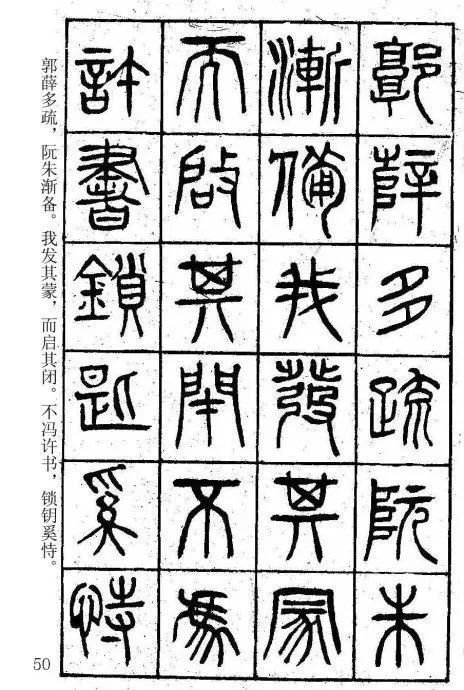 郭薛多疏阮朱
漸備我發其冡
而啟其閉不馮
許書鎖匙奚恃
郭薛多疏，阮朱渐备。我发其蒙，而启其闭。不冯许书，锁钥奚恃。
50